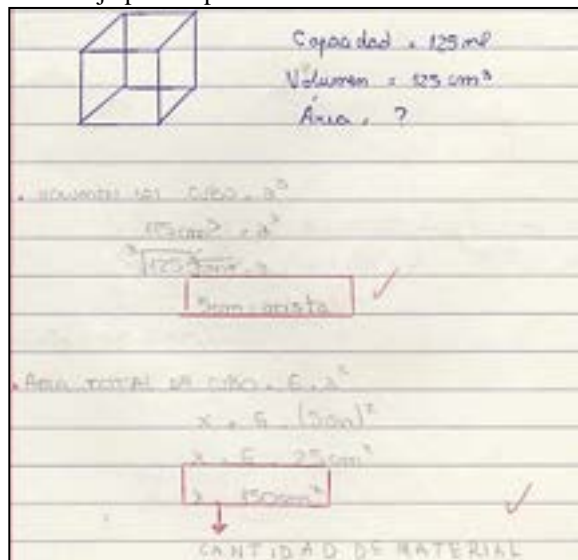 Capacidad = 125 ml
Volumen = 125 cm³
Área = ?
• VOLUMEN DEL CUBO = a³
125cm³ = a³
³√125cm³ = a
5cm = arista
• ÁREA TOTAL DEL CUBO = 6 · a²
x = 6 · (5cm)²
x = 6 · 25cm²
x = 150cm²
CANTIDAD DE MATERIAL